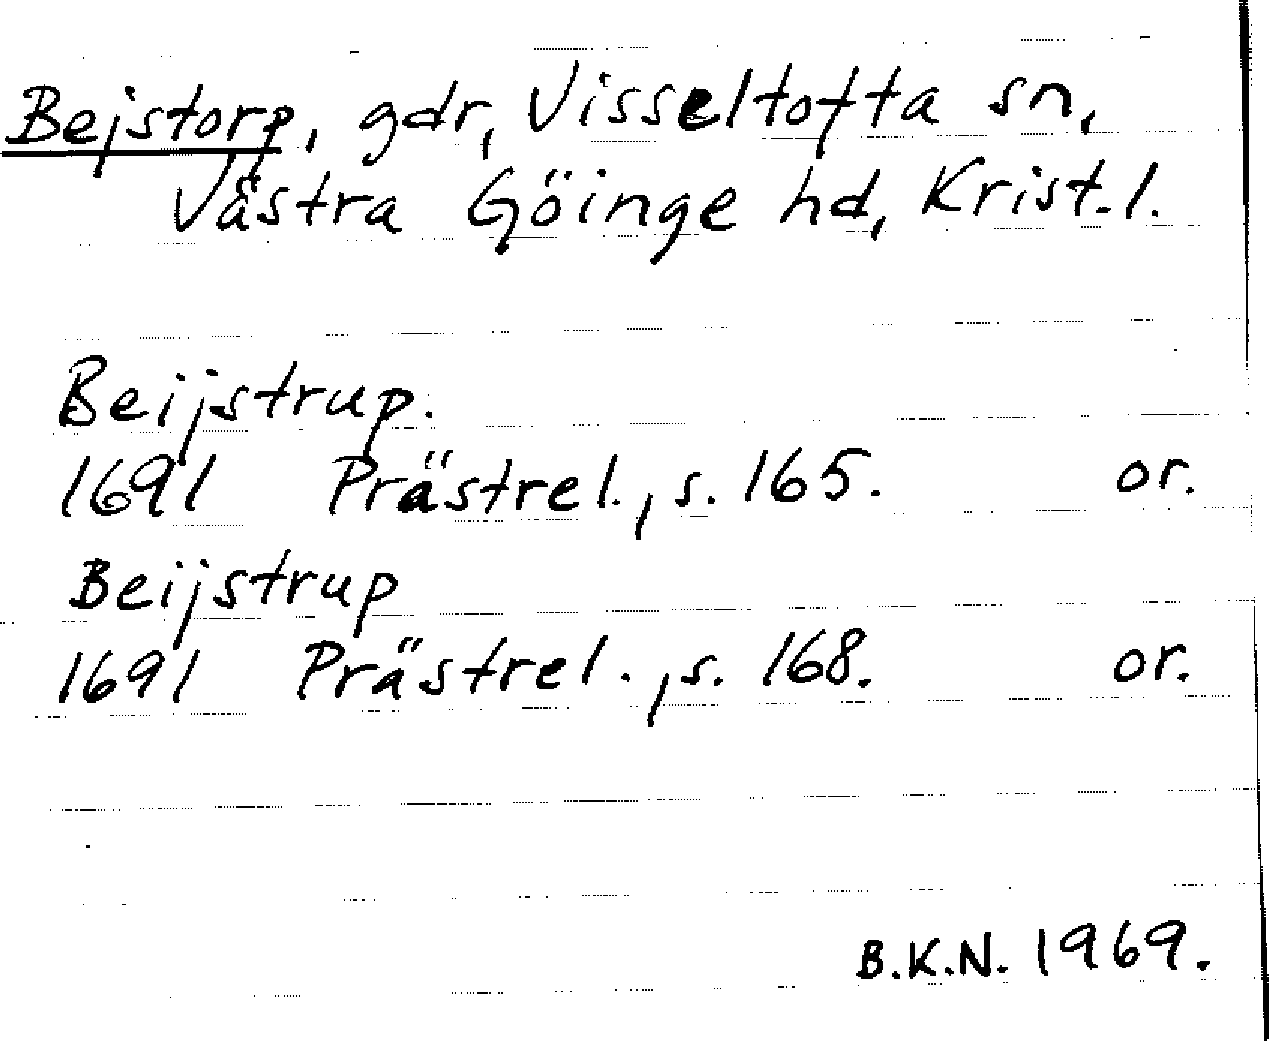 Bejstorp, gdr, Visseltofta sn,
Västra Göinge hd, Krist.l.
Beijstrup.
1691 Prästrel., s. 165. or.
Beijstrup
1691 Prästrel., s. 168. or.
B.K.N. 1969.